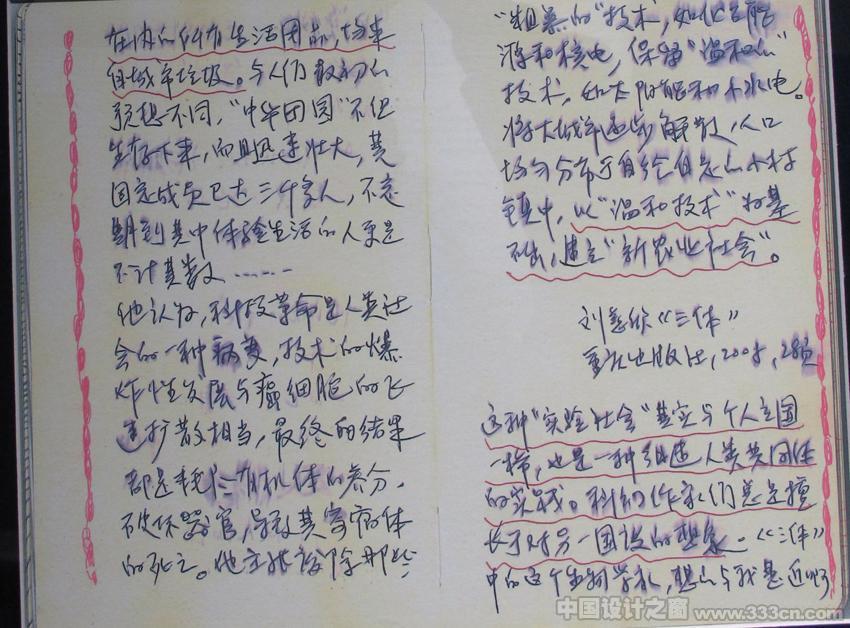 在内的所有生活用品,均来
自城市垃圾。与人们最初的
预想不同,"中华田园"不但
生存下来,而且迅速壮大,其
固定成员已达三千多人,不定
期到其中体验生活的人更是
不计其数……
他认为,科技革命是人类社
会的一种病变,技术的爆
炸性发展与癌细胞的飞
速扩散相当,最终的结果
都是耗尽有机体的养分,
破坏器官,导致其寄宿体
的死亡。他主张废除那些
"粗暴的"技术,如化石能
源和核电,保留"温和的"
技术,如太阳能和小水电。
将大城市逐步解散,人口
均匀分布于自给自足的小村
镇中,以"温和技术"为基
础,建立"新农业社会"。
刘慈欣《三体》
重庆出版社,2008,28页
这种"实验社会"其实与个人主国
一样,也是一种组建人类共同体
的实践。科幻作家们总是擅
长于对另一国设的想象。《三体》
中的这个生物学札,想的与我是近
中国设计之窗 www.333cn.com